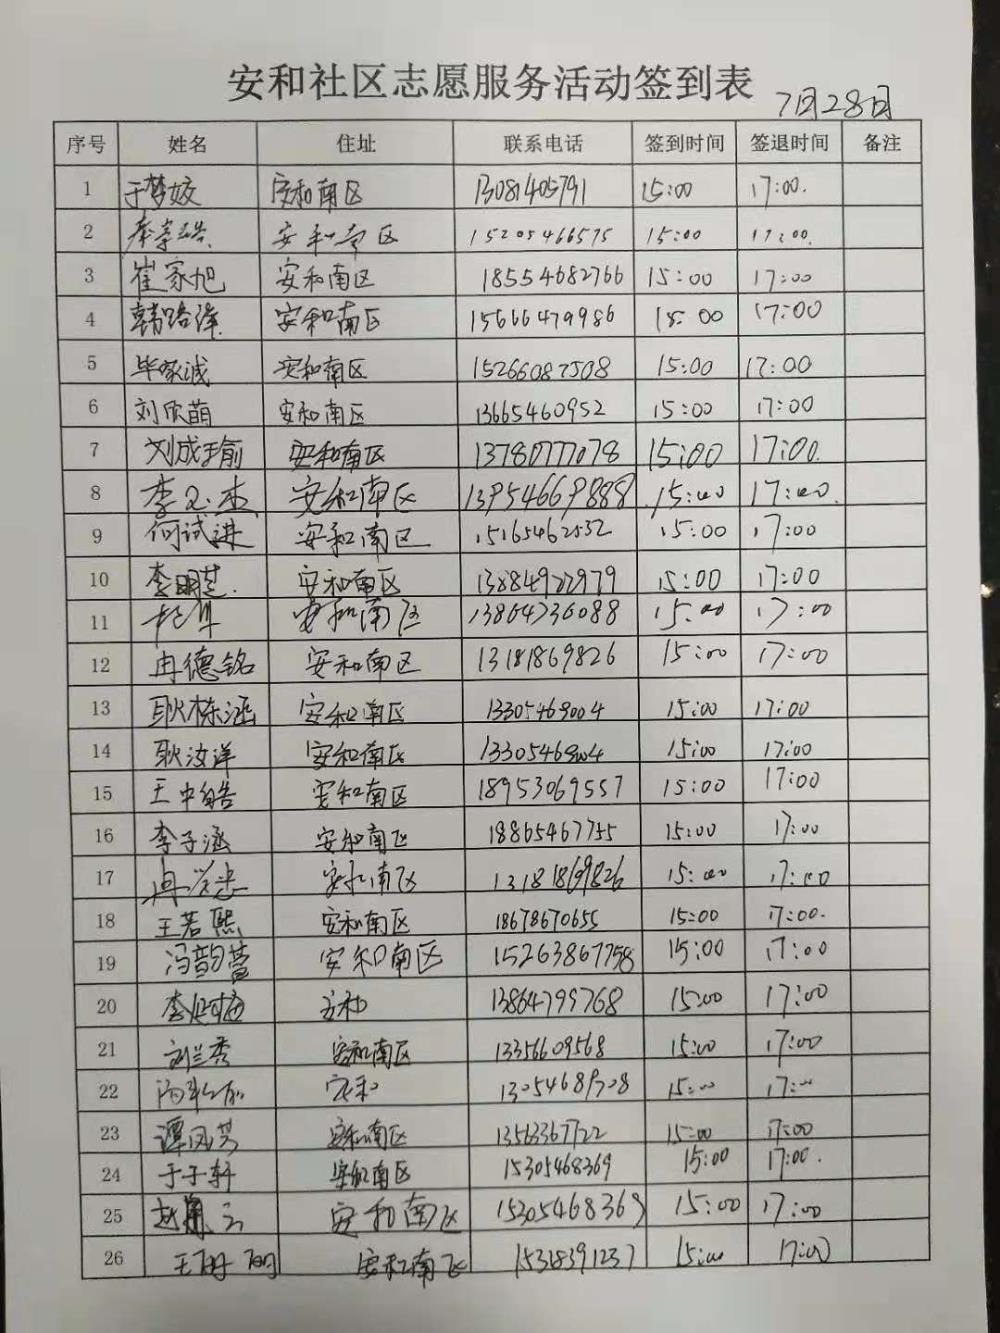 安和社区志愿服务活动签到表
7月28日
序号 姓名 住址 联系电话 签到时间 签退时间 备注
1 于梦姣 安和南区 13081405791 15:00 17:00.
2 安和南区 15205466575 15:00 17:00.
3 崔家旭 安和南区 18554682766 15:00 17:00
4 韩路泽 安和南区 15666479986 15:00 17:00
5 毕家诚 安和南区 15266087508 15:00 17:00
6 刘欣萌 安和南区 13665460952 15:00 17:00
7 刘成瑜 安和南区 13780777078 15:00 17:00.
8 安和南区 13954669888 15:00 17:00.
9 何试进 安和南区 15165462532 15:00 17:00
10 李明芸 安和南区 13884922979 15:00 17:00
11 安和南区 13864736088 15:00 17:00
12 冉德铭 安和南区 13181869826 15:00 17:00
13 耿栋涵 安和南区 13305469004 15:00 17:00
14 耿汝洋 安和南区 13305469004 15:00 17:00
15 王中皓 安和南区 18953069557 15:00 17:00
16 李子涵 安和南区 18865467755 15:00 17:00
17 安和南区 13181869826 15:00 17:00
18 王若熙 安和南区 18678670655 15:00 17:00.
19 冯韵蕾 安和南区 15263867758 15:00 17:00
20 安和 13864799768 15:00 17:00
21 刘兰秀 安和南区 13356609568 15:00 17:00
22 安和 13054689708 15:00 17:00
23 谭凤芳 安和南区 13563367722 15:00 17:00
24 于子轩 安和南区 15305468369 15:00 17:00.
25 安和南区 15305468369 15:00 17:00
26 王丽丽 安和南区 15318391237 15:00 17:00